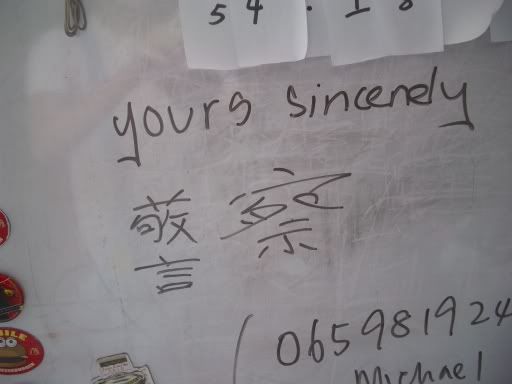 54 . 18
yours sincenely
警察
065981924
Michael